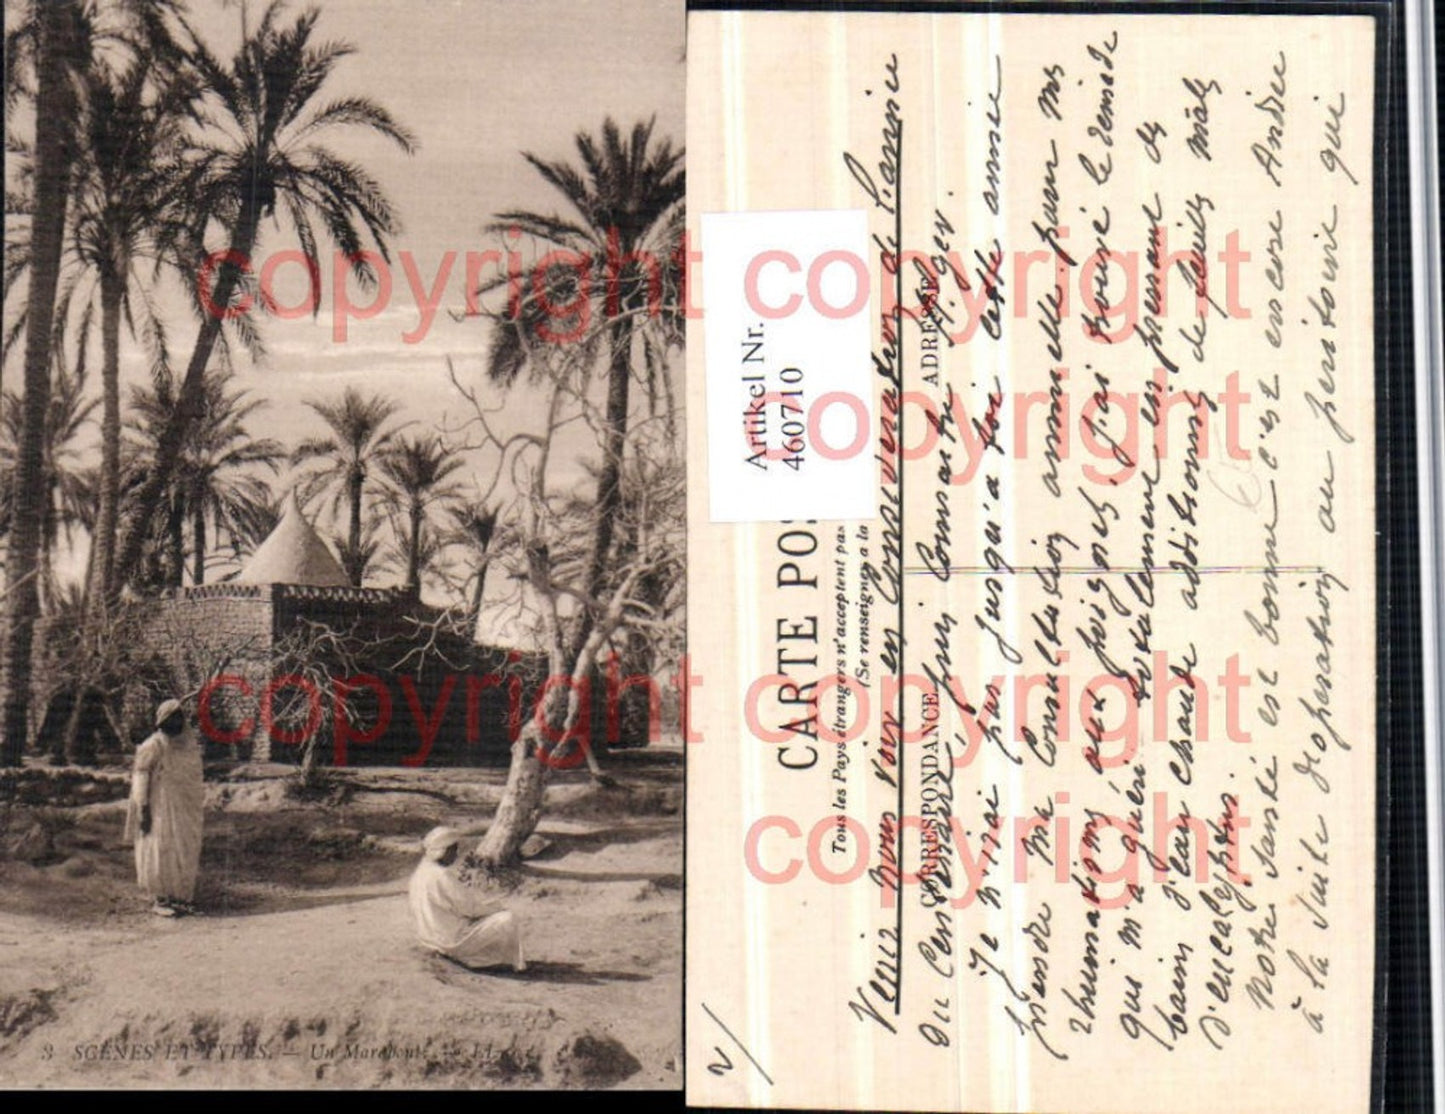 3 SCÈNES ET TYPES. — Un Marabout
copyright copyright
copyright
copyright copyright
copyright
Artikel Nr.
460710
CARTE POS
Tous les Pays étrangers n'acceptent pas
(Se renseigner à la
CORRESPONDANCE
ADRESSE
2/
Venez nous voir en Conservation de l'année
du Centenaire,
Je n'irai pas jusqu'à toi cette année
prendre ma Consultation annuelle pour mes
rhumatismes aux poignets, j'ai trouvé le remède
qui m'a guéri totalement en prenant des
bains d'eau chaude additionnés de feuilles
d'eucalyptus.
Notre santé est bonne c'est encore Andrée
à la suite d'opération au péritoine qui